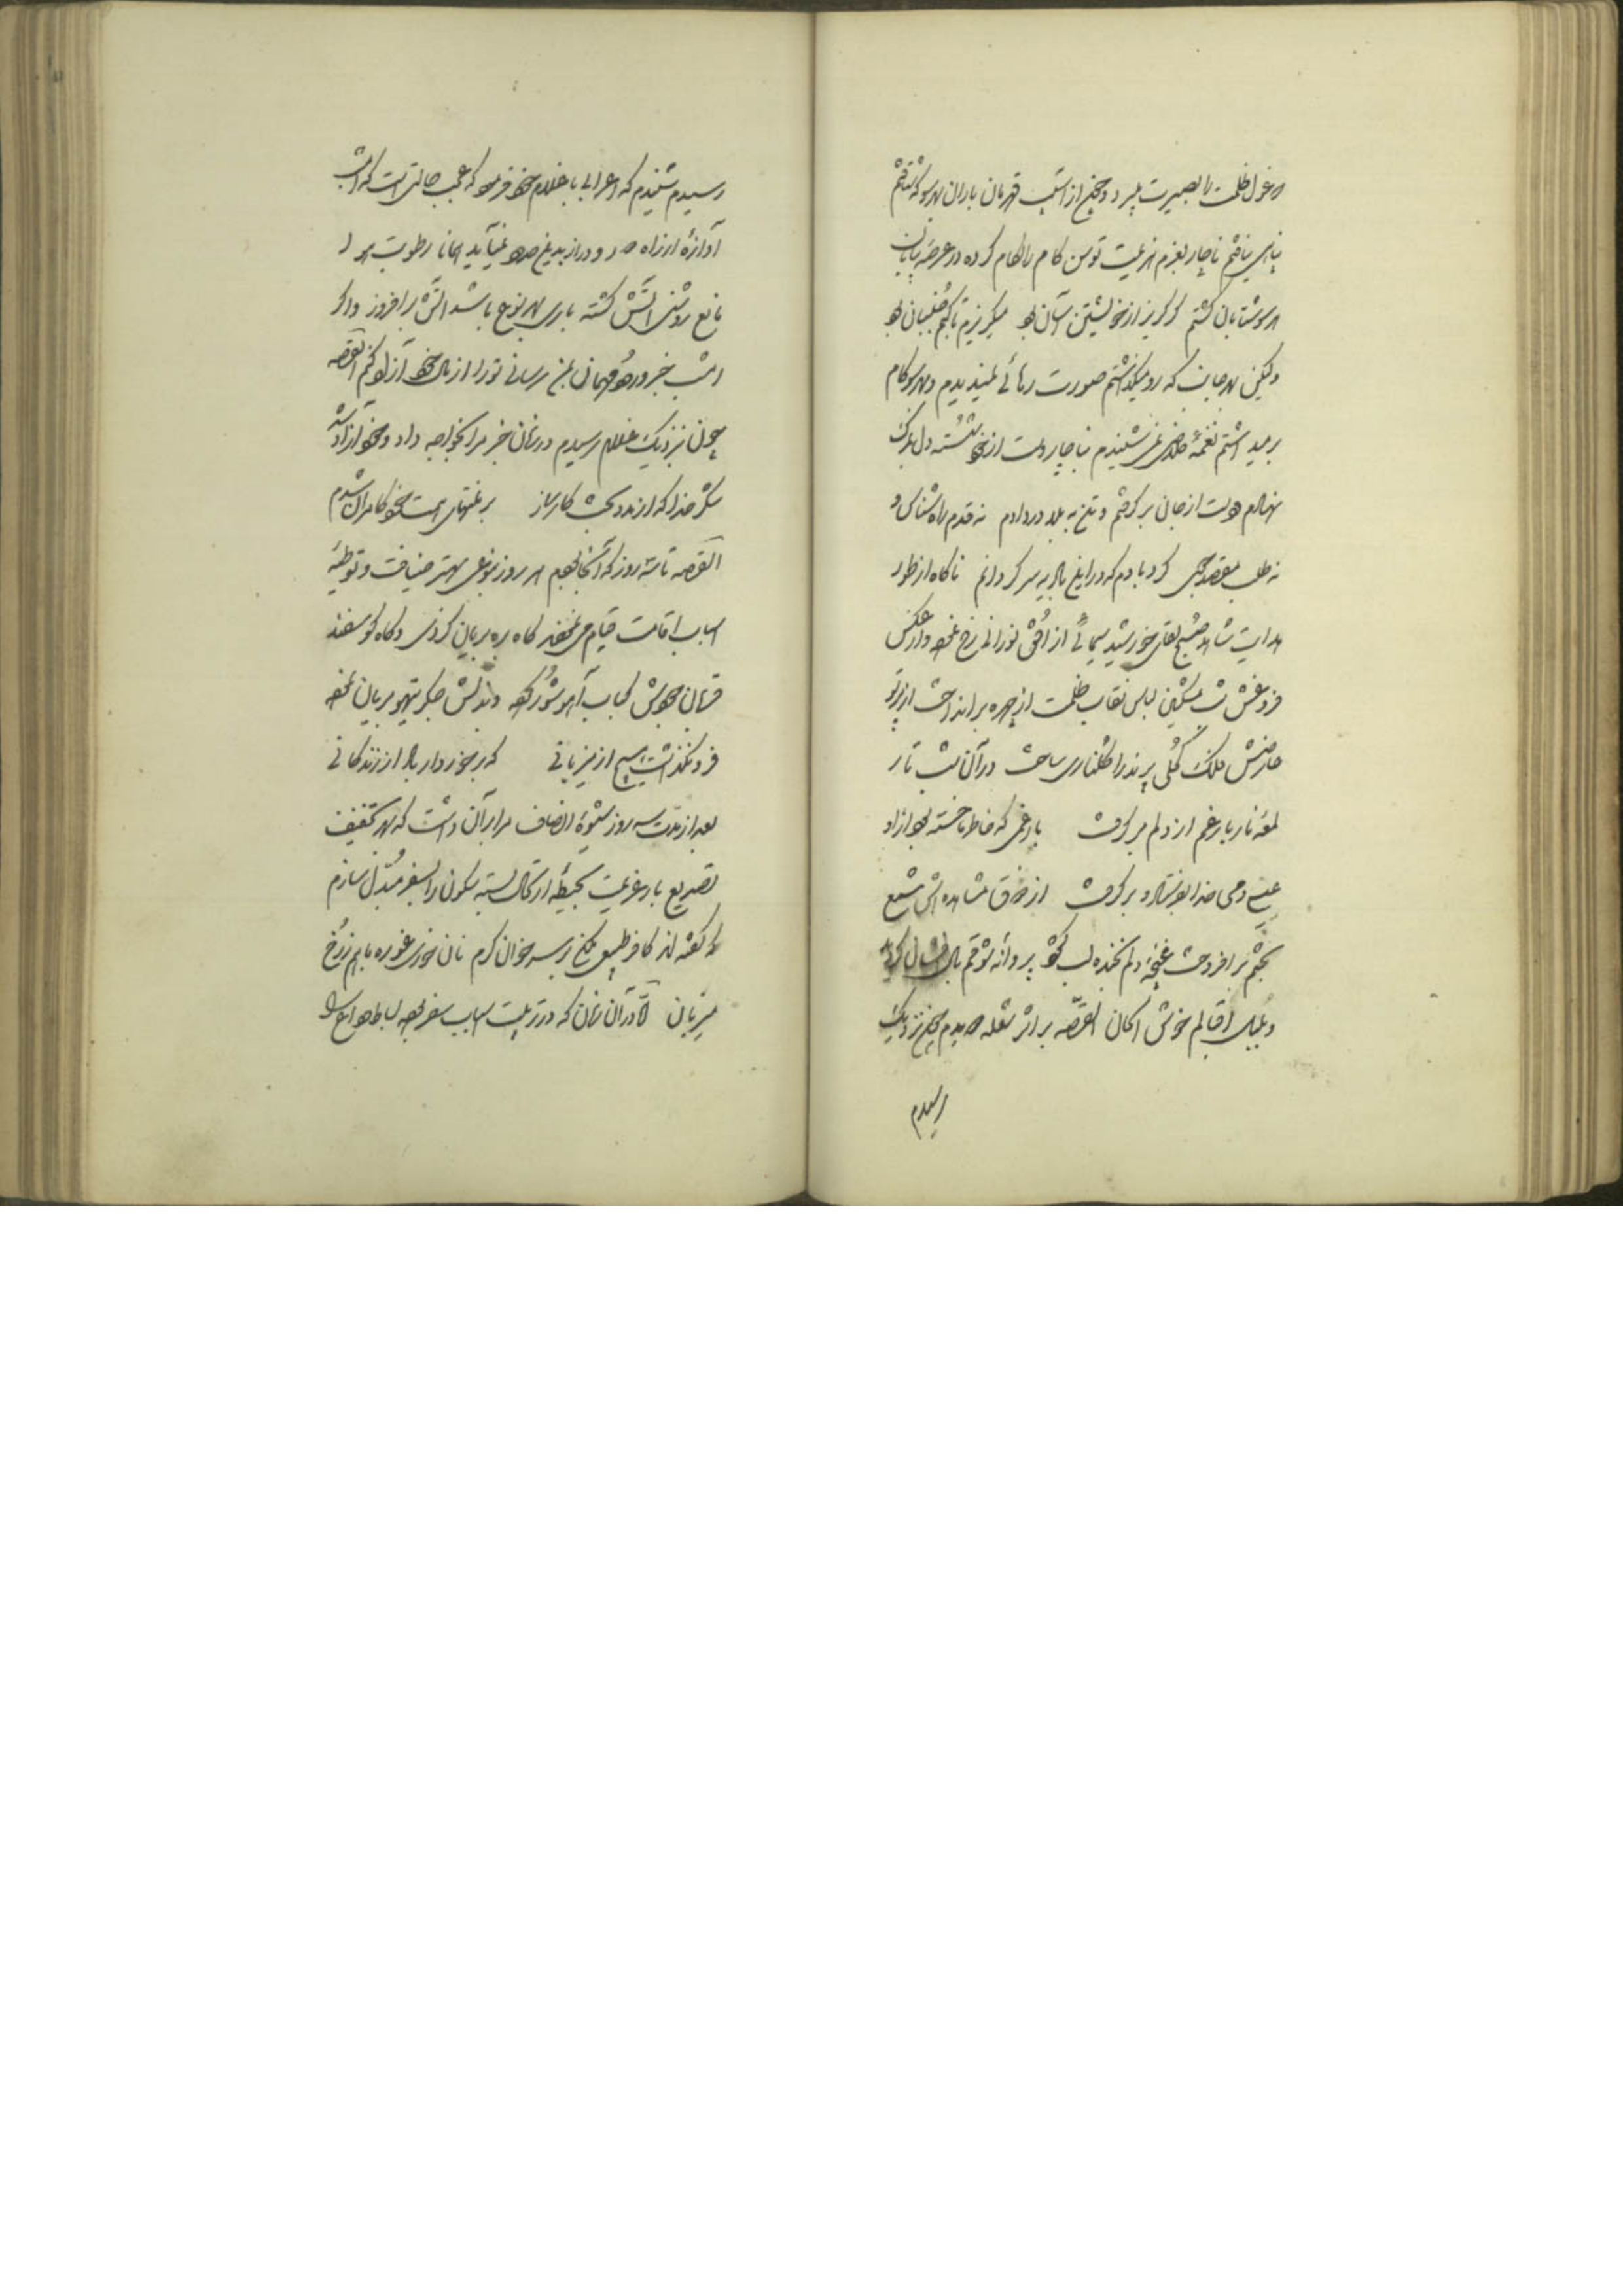 غول ظلمت را بصیرت پسرد و چون از آسیب قهرمان باران بهر سو که شتافتم
پناهی نیافتم ناچار بعزم هزیمت توسن کام را لگام کرده در عرصه بیابان
هر سو شتابان گشتم گر گریز از خویشتن آسان بود میگریزم تا بکم جنبان بود
ولیکن بهر جانب که رو میگذاشتم صورت رهائی نمیدیدم و بهر سو کام
بر میداشتم نغمه خلاصی نمیشنیدم ناچار دست از خود شسته دل بمرگ
نهادم دست از جان برگرفتم و تن به بلا در دادم نه قدم راه شناس و
نه طلب مقصد جوی گردبادم که در این بادیه سرگردانم ناگاه از طور
هدایت شاهد صبح لقای خورشید سیمائی از افق نورانی رخ نمود و از عکس
فروغش شب مشکین لباس نقاب ظلمت از چهره برانداخت از پرتو
عارضش فلک کحلی پرند را گلناری ساخت در آن شب تار
لمعه نار بار غم از دلم برگرفت بار غمی که خاطر ما خسته بود از او
عیسی دمی خدا بفرستاد و برگرفت از ذوق مشاهده اش شمع
بختم برافروخت غنچه دلم بخنده لب گشود پروانه شوقم بال افشان گردید
و بلبل اقبالم خوش الحان القصه بر اثر شعله دویدم چون نزدیک
رسیدم
رسیدم شنیدم که اعرابی با غلام خود فرمود که عجب حالتی است که امشب
آوازه از راه دور و دراز بدین حدود نمیآید همانا رطوبت هوا
مانع روشنی آتش گشته باری بهر نوع باشد آتش برافروز و اگر
امشب خبر ورود مهمانی بمن رسانی تو را از مال خود آزاد کنم القصه
چون نزدیک غلام رسیدم در زمان خبر مرا بخواجه داد و خود آزاد شد
شکر خدا که از مدد بخت کارساز بر منتهای همت خود کامران شدم
القصه تا سه روز که آنجا بودم هر روز بنوعی بهتر ضیافت و توطئه
اسباب اقامت قیام می نمود گاه بره بریان کردی و گاه گوسفند
قربان جودش کباب آهو شور کرده و بذلش جگر تیهو بریان نموده
فرو نگذاشت هیچ از میزبانی که برخوردار باد از زندگانی
بعد از مدت سه روز شیوه انصاف مرا بر آن داشت که بهر تخفیف
تصدیع بار عزیمت بحیطه ارتحال بسته سکون را بسفر مبدل سازم
که گفته اند کافر طبعی مکن بر سر خوان کرم نان خوری غوره با بهم زن رخ
میزبان در آن زمان که در ترتیب اسباب سفر بودم